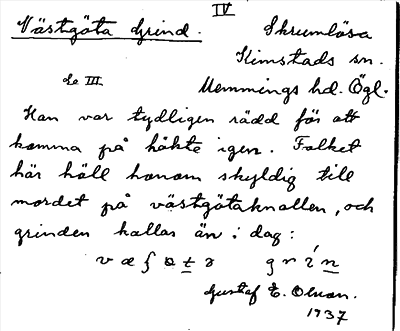 IV
Västgöta Grind. Skrumlösa
Kimstads sn.
Se III. Memmings hd. Ögl.
Han var tydligen rädd för att
komma på häkte igen. Folket
här höll honom skyldig till
mordet på västgötaknallen, och
grinden kallas än i dag:
Gustaf E. Olsson.
1937